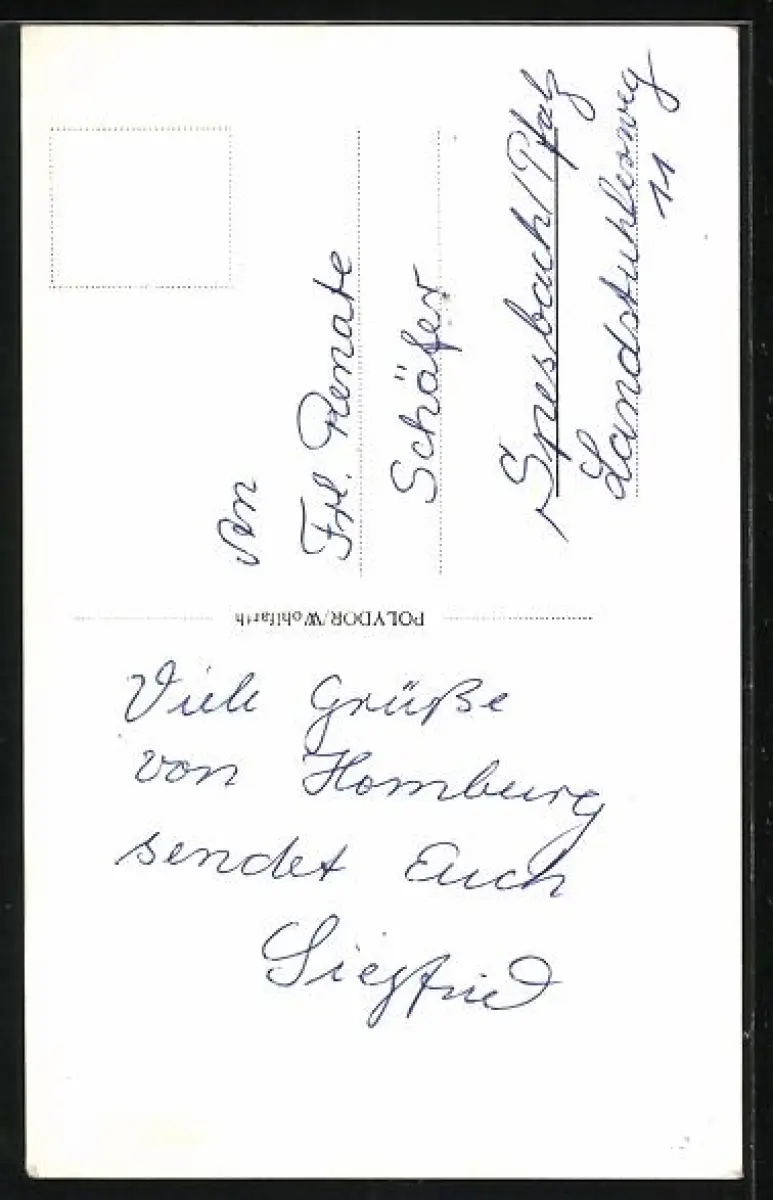 An
Frl. Renate
Schäfer
Spesbach/Pfalz
Landstuhlerweg
11
POLYDOR/Wohlfarth
Viele Grüße
von Homburg
sendet Euch
Siegfried